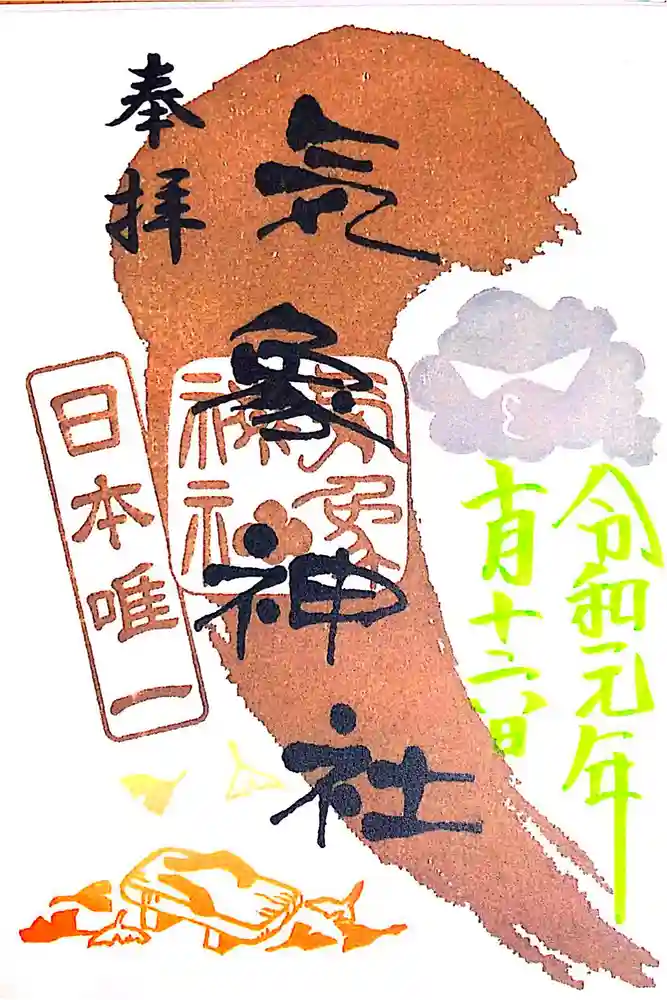 令和元年
十月十六日
気象神社
氣象
神社
奉拝
日本唯一